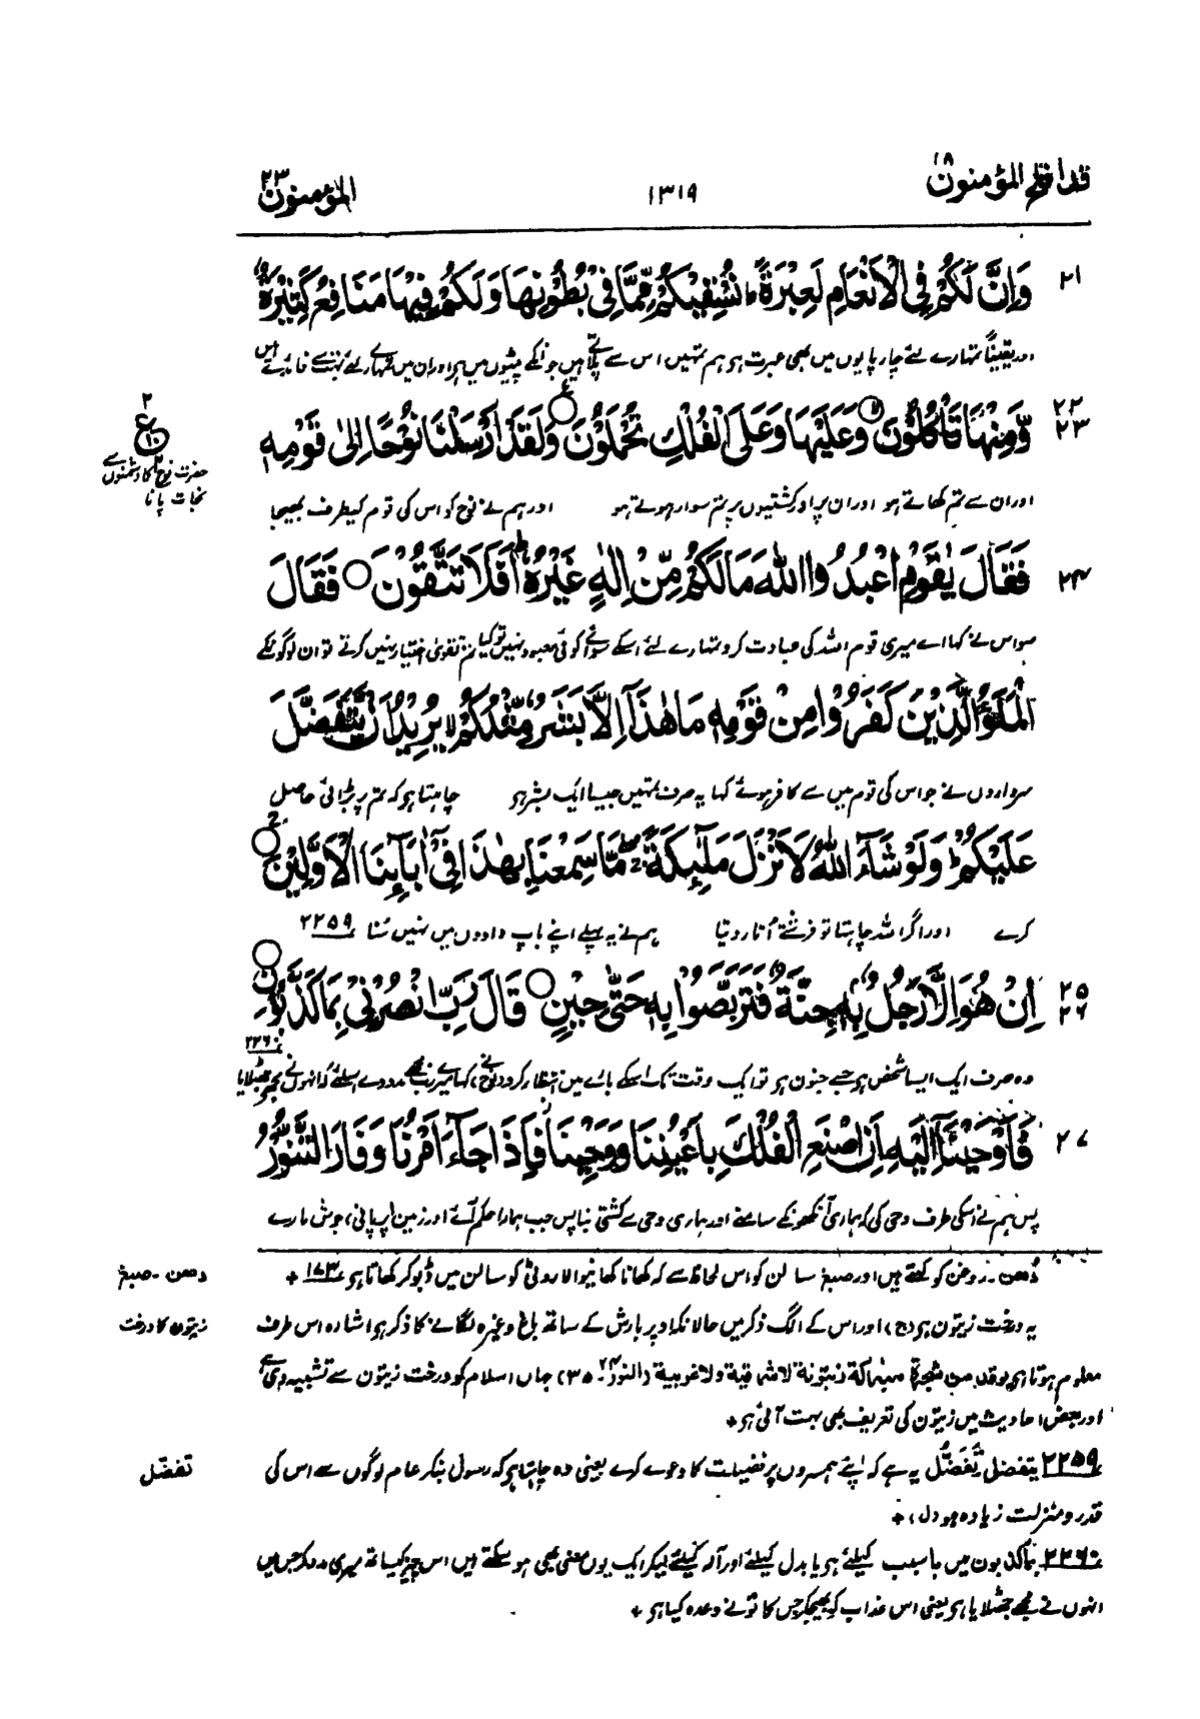 قد افلح المؤمنون ۱۸
۱۳۱۹
المؤمنون ۲۳
۲۱ وَاِنَّ لَكُمْ فِى الْاَنْعَامِ لَعِبْرَةً ؕ نُسْقِيْكُمْ مِّمَّا فِىْ بُطُوْنِهَا وَ لَكُمْ فِيْهَا مَنَافِعُ كَثِيْرَةٌ
اور یقیناً تمہارے لئے چارپایوں میں بھی عبرت ہو ہم تمہیں اس سے پلاتے ہیں جو انکے پیٹوں میں ہو اور ان میں تمہارے لئے بہت سے فائدے ہیں
۲۲ ۲۳ وَّمِنْهَا تَاْكُلُوْنَ وَعَلَيْهَا وَعَلَى الْفُلْكِ تُحْمَلُوْنَ وَلَقَدْ اَرْسَلْنَا نُوْحًا اِلٰى قَوْمِهٖ
۲ ع ۱۰
حضرت نوح کا دشمنوں سے
نجات پانا
اور ان سے تم کھاتے ہو اور ان پر اور کشتیوں پر تم سوار ہوتے ہو اور ہم نے نوح کو اس کی قوم کیطرف بھیجا
۲۴ فَقَالَ يٰقَوْمِ اعْبُدُوا اللّٰهَ مَا لَكُمْ مِّنْ اِلٰهٍ غَيْرُهٗ ؕ اَفَلَا تَتَّقُوْنَ فَقَالَ
سو اس نے کہا اے میری قوم اللہ کی عبادت کرو تمہارے لئے اسکے سوائے کوئی معبود نہیں تو کیا تم تقویٰ اختیار نہیں کرتے تو ان لوگونکے
الْمَلَؤُا الَّذِيْنَ كَفَرُوْا مِنْ قَوْمِهٖ مَا هٰذَاۤ اِلَّا بَشَرٌ مِّثْلُكُمْ ۙ يُرِيْدُ اَنْ يَّتَفَضَّلَ
سرداروں نے جو اس کی قوم میں سے کافر ہوئے کہا یہ صرف تمہیں جیسا ایک بشر ہو چاہتا ہو کہ تم پر بڑائی حاصل
عَلَيْكُمْ ؕ وَلَوْ شَآءَ اللّٰهُ لَاَنْزَلَ مَلٰٓئِكَةً ۖ مَّا سَمِعْنَا بِهٰذَا فِىْۤ اٰبَآئِنَا الْاَوَّلِيْنَ
کرے اور اگر اللہ چاہتا تو فرشتے اُتار دیتا ہم نے یہ پہلے اپنے باپ دادوں میں نہیں سُنا ۲۲۵۹
۲۵ ۲۶ اِنْ هُوَ اِلَّا رَجُلٌۢ بِهٖ جِنَّةٌ فَتَرَبَّصُوْا بِهٖ حَتّٰى حِيْنٍ قَالَ رَبِّ انْصُرْنِىْ بِمَا كَذَّبُوْنِ
وہ صرف ایک ایسا شخص ہو جسے جنون ہو تو ایک وقت تک اسکے بارے میں انتظار کرو نوح نے کہا اے میرے رب مجھے مدد دے اسلئے کہ انہوں نے مجھے جھٹلایا ۲۲۶۰
۲۷ فَاَوْحَيْنَاۤ اِلَيْهِ اَنِ اصْنَعِ الْفُلْكَ بِاَعْيُنِنَا وَوَحْيِنَا فَاِذَا جَآءَ اَمْرُنَا وَفَارَ التَّنُّوْرُ
پس ہم نے اسکی طرف وحی کی کہ ہماری آنکھونکے سامنے اور ہماری وحی سے کشتی بنا پس جب ہمارا حکم آئے اور زمین (پر پانی) جوش مارے
دھن ۔ صبغ
دُھن۔ روغن کو کہتے ہیں اور صبغ سالن کو اس لحاظ سے کہ کھانا کھانیوالا روٹی کو سالن میں ڈبو کر کھاتا ہو ۱۷۳ +
زیتون کا درخت
یہ درخت زیتون ہو (ج) اور اس کے الگ ذکر میں حالانکہ اوپر بارش کے ساتھ باغ وغیرہ لگانے کا ذکر ہو اشارہ اس طرف
معلوم ہوتا ہو یوقد من شجرة مبٰركة زيتونة لا شرقية ولا غربية (النور ۲۴ : ۳۵) جہاں اسلام کو درخت زیتون سے تشبیہ دی ہے
اور بعض احادیث میں زیتون کی تعریف بھی بہت آئی ہو +
تفضّل
۲۲۵۹ یتفضل تَفَضُّل یہ ہے کہ اپنے ہمسروں پر فضیلت کا دعوے کرے یعنی وہ چاہتا ہو کہ رسول بنکر عام لوگوں سے اس کی
قدر و منزلت زیادہ ہو (ل) +
۲۲۶۰ بما کذبون میں با سبب کیلئے ہو یا بدل کیلئے اور آلہ کیلئے لیکر ایک یوں معنی بھی ہو سکتے ہیں اس چیز کیساتھ میری مدد کر جس میں
انہوں نے مجھے جھٹلایا ہو یعنی اس عذاب کو بھیجکر جس کا تونے وعدہ کیا ہو +